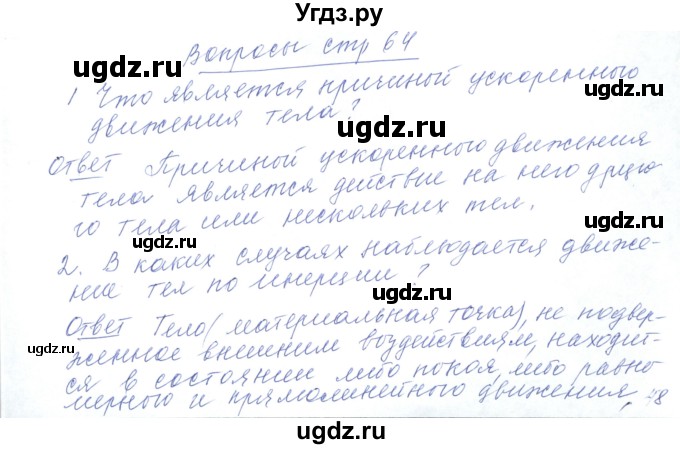 Угдз.ру
Вопросы стр 64
1 Что является причиной ускоренного
движения тела?
Ответ Причиной ускоренного движения
тела является действие на него друго-
го тела или нескольких тел.
2. В каких случаях наблюдается движе-
ние тел по инерции?
Ответ Тело (материальная точка), не подвер-
женное внешним воздействиям, находит-
ся в состоянии либо покоя, либо равно
мерного и прямолинейного движения.
48
ugdz.ru
ugdz.ru
ugdz.ru
ugdz.ru
ugdz.ru
ugdz.ru
ugdz.ru
ugdz.ru
ugdz.ru
ugdz.ru